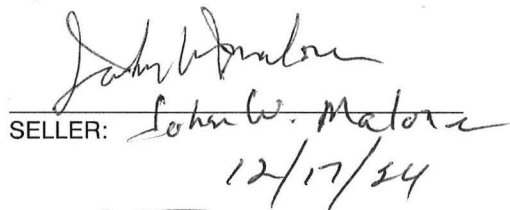 John W Malone
SELLER: John W. Malone
12/17/24